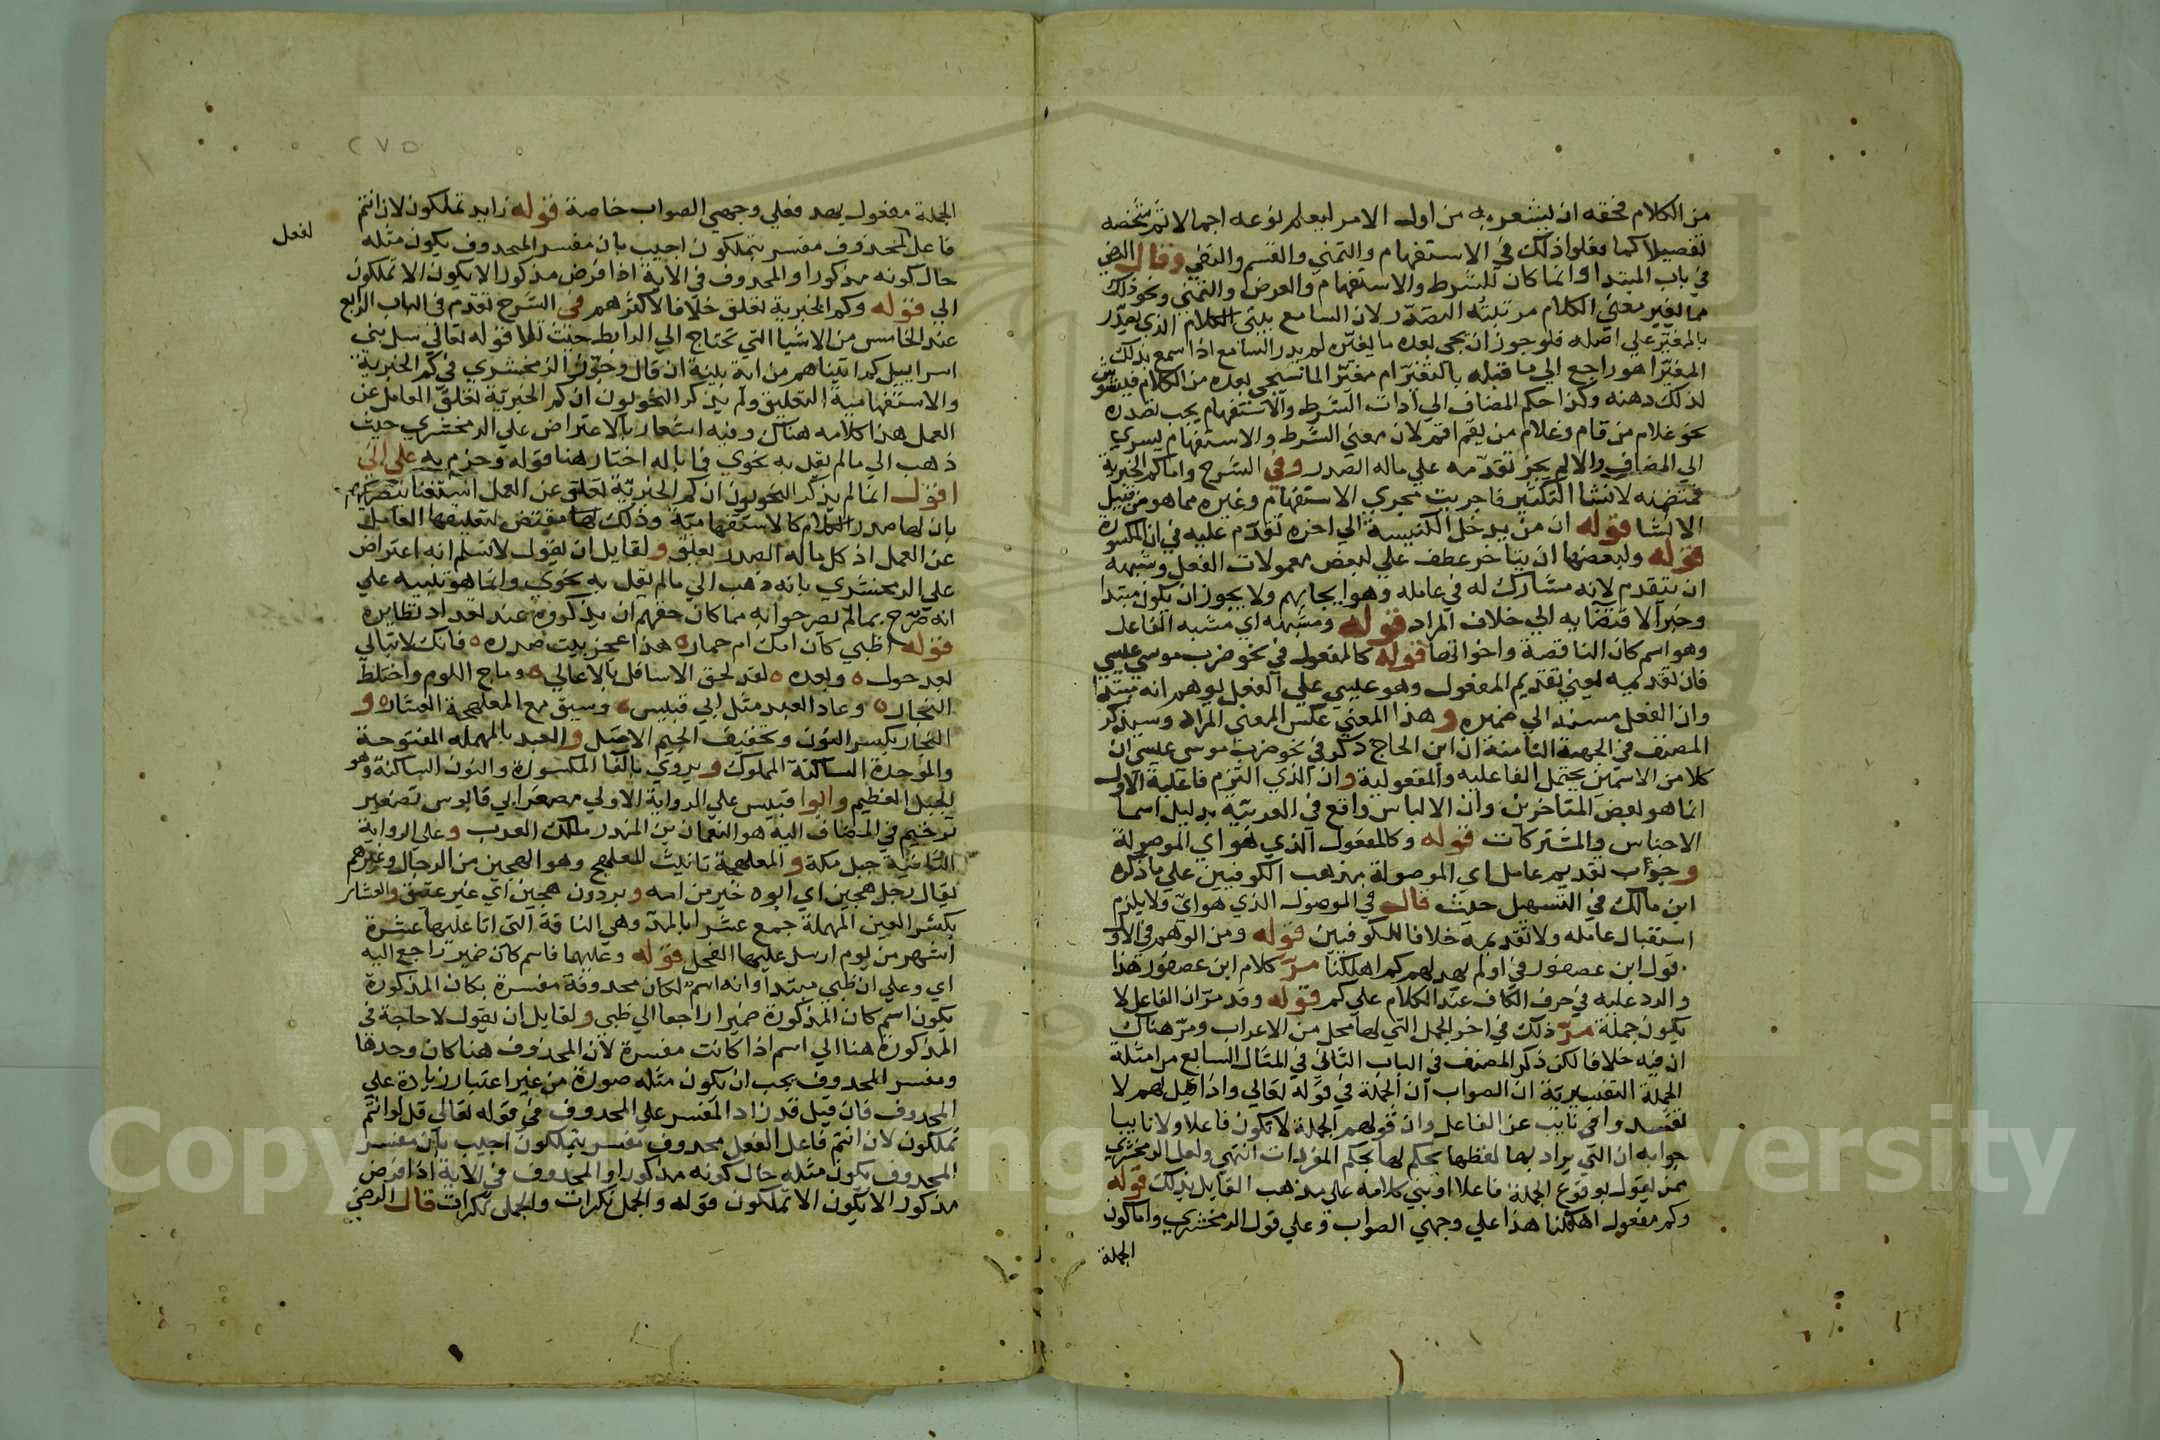 من الكلام فحقه ان يشعر به من اول الامر ليعلم نوعه اجمالا ثم تتخصه
تفصيلا كما فعلوا ذلك في الاستفهام والتمني والقسم والنفي وقال الرضي
في باب المبتدا وانما كان للشرط والاستفهام والعرض والتمني ونحو ذلك
مما يغير معني الكلام مرتبته التصدر لان السامع يبني الكلام الذي يصدر
بالمغير علي اصله فلو جوز ان يجي بعده ما يغيره لم يدر السامع اذا سمع بذلك
المغير اهو راجع الي ما قبله بالتغيير ام مغير لما سيجي بعده من الكلام فيتشوش
لذلك ذهنه وكذا حكم المضاف الي اداة الشرط والاستفهام يجب تصدره
نحو غلام من قام وغلام من يقم اقم لان معني الشرط والاستفهام يسري
الي المضاف والا لم يجز تقدمه علي ماله الصدر وفي الشرح واما كم الخبرية
فمتضمنه لانشا التكثير فاجريت مجري الاستفهام وغيره مما هو من قبيل
الانشا قوله ان من يدخل الكنيسة الي اخره تقدم عليه في ان المكسورة
قوله ولبعضها ان يتاخر عطف علي لبعض معمولات الفعل وشبهه
ان يتقدم لانه مشارك له في عامله وهو ايجابهم ولا يجوز ان يكون مبتدا
وخبرا لاقتضايه الي خلاف المراد قوله ومشبهه اي مشبه الفاعل
وهو اسم كان الناقصة واخواتها قوله كالمفعول في نحو ضرب موسي عيسي
فان تقديمه يعني تقديم المفعول وهو عيسي علي الفعل يوهم انه مبتدا
وان الفعل مسند الي ضميره وهذا المعني عكس المعني المراد وسيذكر
المصنف في الجهة الثامنة ان ابن الحاج ذكر في نحو ضرب موسي عيسي ان
كلا من الاسمين يحتمل الفاعليه والمفعولية وان الذي التزم فاعلية الاول
انما هو بعض المتاخرين وان الالباس واقع في العربية بدليل اسما
الاجناس والمشتركات قوله وكالمفعول الذي هو اي الموصولة
وجواب تقديم عامل اي الموصولة مذهب الكوفيين علي ما ذكره
ابن مالك في التسهيل حيث قال في الموصول الذي هو اي ولا يلزم
استقبال عامله ولا تقديمه خلافا للكوفيين قوله ومن الوهم في الاول
قول ابن عصفور في اولم يهد لهم كم اهلكنا مر كلام ابن عصفور هذا
والرد عليه في حرف الكاف عند الكلام علي كم قوله وقد مر ان الفاعل لا
يكون جملة مر ذلك في اخر الجمل التي لها محل من الاعراب ومر هناك
ان فيه خلافا لكن ذكر المصنف في الباب الثاني في المثال السابع من امثلة
الجملة التفسيرية ان الصواب ان الجملة في قوله تعالي واذا قيل لهم لا
تفسدوا في نايب عن الفاعل وان قولهم الجملة لا تكون فاعلا ولا نايبا
جوابه ان التي يراد بها لفظها يحكم لها بحكم المفردات انتهي ولعل الزمخشري
ممن يقول بوقوع الجملة فاعلا او بني كلامه علي مذهب القايل بذلك قوله
وكم مفعول اهلكنا هذا علي وجهي الصواب وعلي قول الزمخشري واما كون
الجملة
٢٧٥
الجملة مفعول يهد فعلي وجهي الصواب خاصة قوله زايد تملكون لان انتم
فاعل المحذوف مفسر بتملكون اجيب بان مفسر المحذوف يكون مثله
لفعل
حال كونه مذكورا والمحذوف في الاية اذا فرض مذكورا لا يكون الا تملكون
الي قوله وكم الخبرية تعلق خلافا لاكثرهم في الشرح تقدم في الباب الرابع
عند الخامس من الاشيا التي تحتاج الي الرابط حيث تلا قوله تعالي سل بني
اسراييل كم اتيناهم من اية بينة ان قال وجوز الزمخشري في كم الخبرية
والاستفهامية التعليق ولم يذكر النحويون ان كم الخبرية تعلق العامل عن
العمل هذا كلامه هناك وفيه اشعار بالاعتراض علي الزمخشري حيث
ذهب الي مالم يقل به نحوي فما باله اختار هنا قوله وجزم به علي اني
اقول انما لم يذكر النحويون ان كم الخبرية تعلق عن العمل استغنا بتصريحهم
بان لها صدر الكلام كالاستفهامية وذلك لها مقتض لتعليقها العامل
عن العمل اذ كل ما له الصدر يعلق ولقايل ان يقول لا نسلم انه اعتراض
علي الزمخشري بانه ذهب الي مالم يقل به نحوي وانما هو تنبيه علي
انه صرح بما لم يصرحوا به مما كان حقهم ان يذكروه عند تعداد نظايره
قوله اظبي كان امك ام حمار ه هذا عجز بيت صدره ه فانك لا تبالي
بعد حول ه وبعده ه لقد لحق الاسافل بالاعالي ه وماج اللوم واختلط
النجار ه وعاد العبد مثل ابي قبيس ه وسيق مع المعلهجة العشار ه و
النجار بكسر النون وتخفيف الجيم الاصل والعبد بالمهمله المفتوحة
والموحدة الساكنة المملوك ويروي بالفا المكسورة والنون الساكنة وهو
الجبل العظيم وابوا قبيس علي الرواية الاولي مصغر ابي قابوس تصغير
ترخيم في المضاف اليه هو النعمان بن المنذر ملك العرب وعلي الرواية
الثانية جبل مكة والمعلهجة تانيث المعلهج وهو الهجين من الرجال وغيرهم
يقال رجل هجين اي ابوه خير من امه وبرذون هجين اي غير عتيق والعشار
بكسر العين المهملة جمع عشرا بالمد وهي الناقة التي اتا عليها عشرة
اشهر من يوم ارسل عليها الفحل قوله وعليهما فاسم كان ضمير راجع اليه
اي وعلي ان ظبي مبتدا وانه اسم لكان محذوفة مفسرة بكان المذكورة
يكون اسم كان المذكورة ضميرا راجعا الي ظبي ولقايل ان يقول لا حاجة في
المذكورة هنا الي اسم اذا كانت مفسرة لان المحذوف هنا كان وحدها
ومفسر المحذوف يجب ان يكون مثله صورة من غير اعتبار زيادة علي
المحذوف فان قيل قد زاد المفسر علي المحذوف في قوله تعالي قل لو انتم
تملكون لان انتم فاعل الفعل محذوف مفسر بتملكون اجيب بان مفسر
المحذوف يكون مثله حال كونه مذكورا والمحذوف في الاية اذا فرض
مذكورا لا يكون الا تملكون قوله والجمل نكرات والجمل نكرات قال الرضي